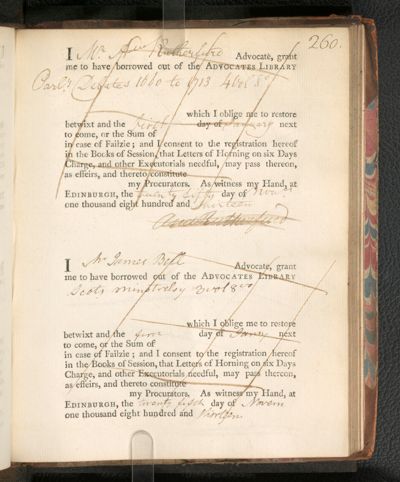 260.
I Mr. Andw Rutherfurd Advocate, grant
me to have borrowed out of the ADVOCATES LIBRARY
Parly Debates 1660 to 1713 4 vol 8vo
which I oblige me to restore
betwixt and the first day of January next
to come, or the Sum of
in case of Failzie; and I consent to the registration hereof
in the Books of Session, that Letters of Horning on six Days
Charge, and other Executorials needful, may pass thereon,
as effeirs, and thereto constitute
my Procurators. As witness my Hand, at
EDINBURGH, the twenty fifth day of Novr
one thousand eight hundred and thirteen
Rutherfurd
I Mr James Bell Advocate, grant
me to have borrowed out of the ADVOCATES LIBRARY
Scots minstrelsy 3 vol 8vo
which I oblige me to restore
betwixt and the first day of Jany next
to come, or the Sum of
in case of Failzie; and I consent to the registration hereof
in the Books of Session, that Letters of Horning on six Days
Charge, and other Executorials needful, may pass thereon,
as effeirs, and thereto constitute
my Procurators. As witness my Hand, at
EDINBURGH, the twenty fifth day of Novem
one thousand eight hundred and thirteen